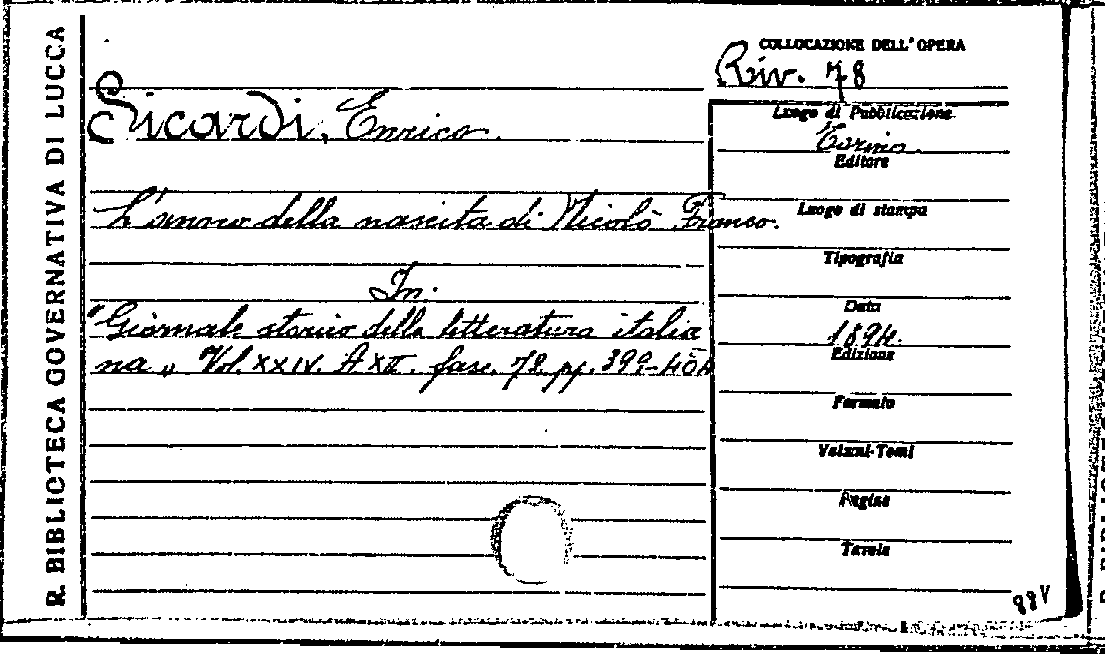 R. BIBLIOTECA GOVERNATIVA DI LUCCA
COLLOCAZIONE DELL'OPERA
Riv. 78
Sicardi, Enrico.
L'anno della nascita di Nicolò Franco.
In:
"Giornale storico della letteratura italia
na" Vol. XXIV. A XII. fasc. 72. pp. 399-404
Luogo di Pubblicazione
Torino.
Editore
Luogo di stampa
Tipografia
Data
1894.
Edizione
Formato
Volumi-Tomi
Pagine
Tavole